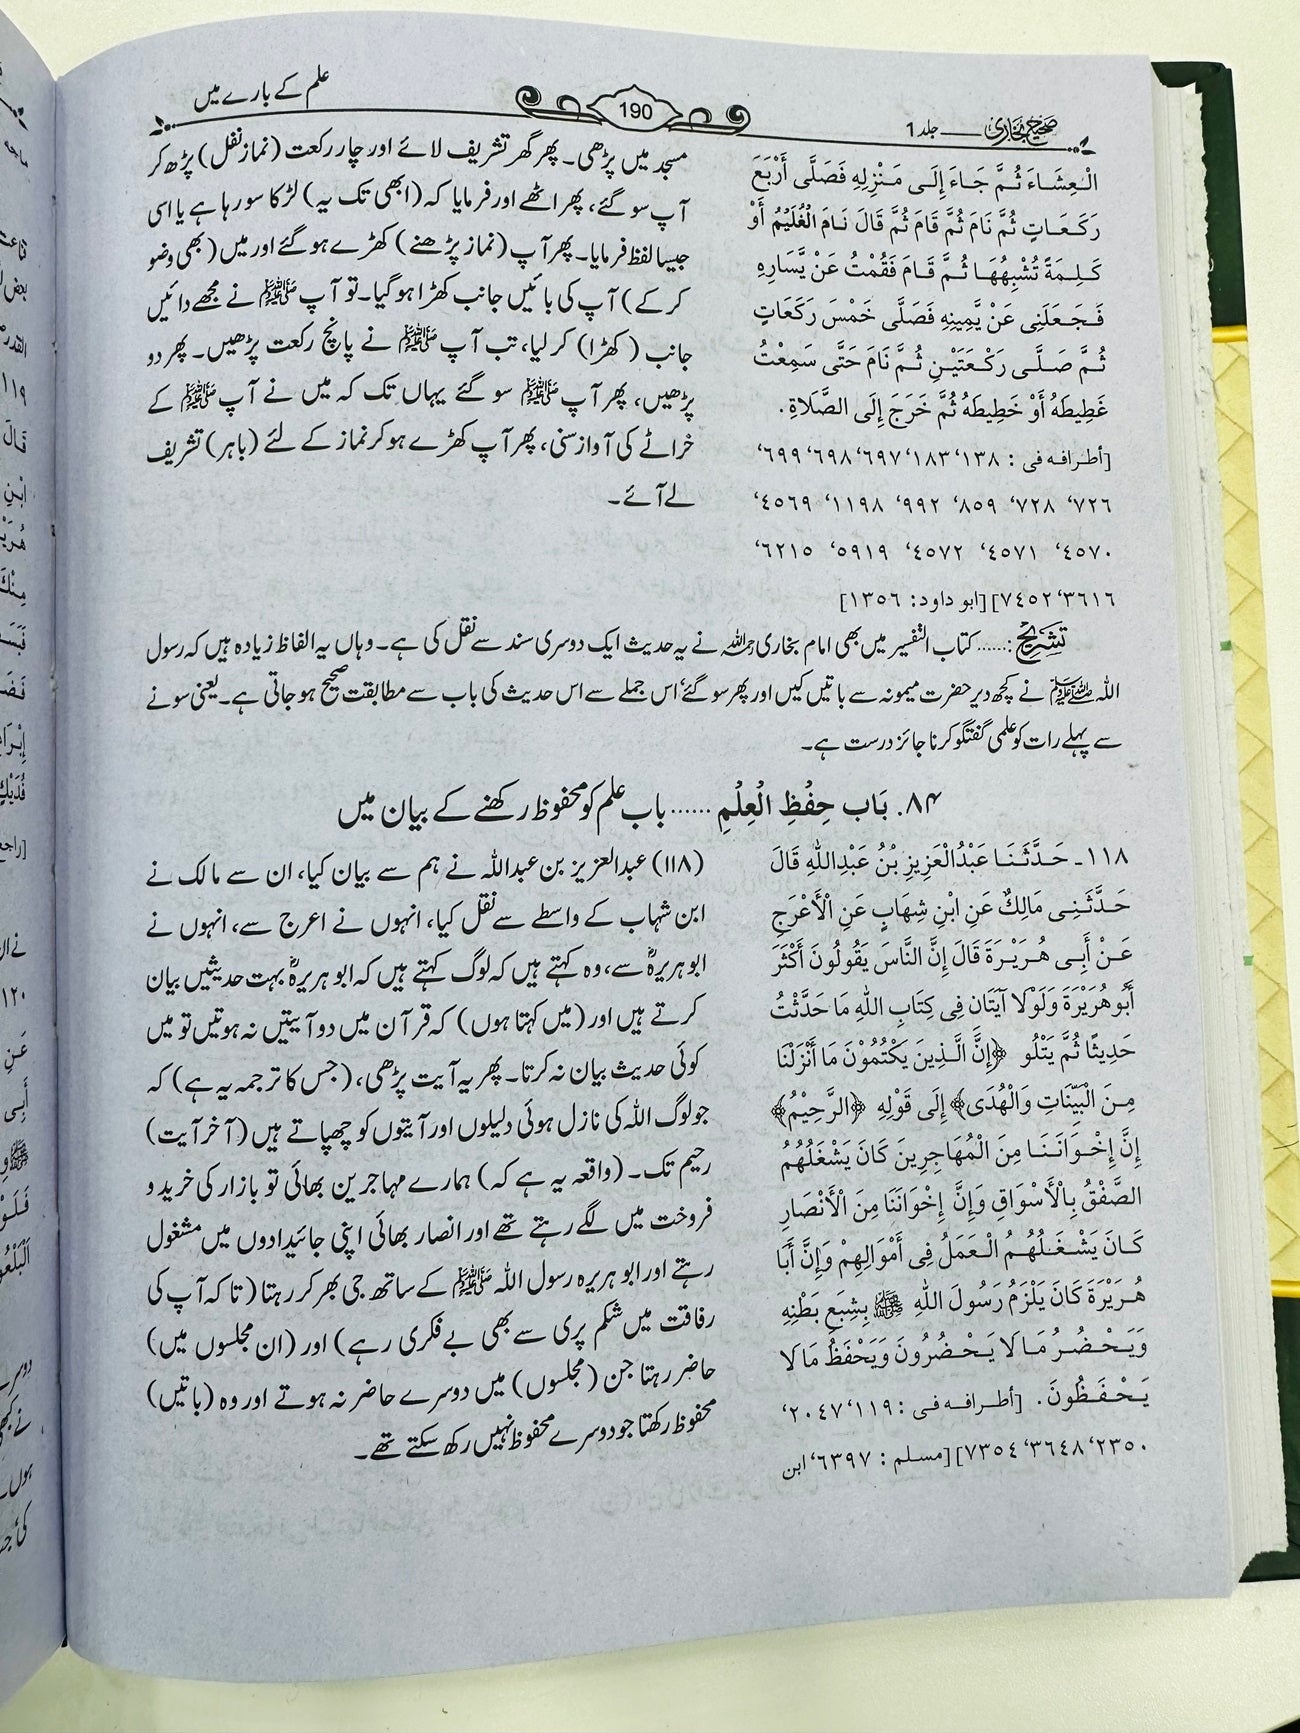 صحیح بخاری ــــ جلد 1
190
علم کے بارے میں
الْعِشَاءَ ثُمَّ جَاءَ إِلَى مَنْزِلِهِ فَصَلَّى أَرْبَعَ
رَكَعَاتٍ ثُمَّ نَامَ ثُمَّ قَامَ ثُمَّ قَالَ نَامَ الْغُلَيِّمُ أَوْ
كَلِمَةً تُشْبِهُهَا ثُمَّ قَامَ فَقُمْتُ عَنْ يَّسَارِهِ
فَجَعَلَنِى عَنْ يَّمِينِهِ فَصَلَّى خَمْسَ رَكَعَاتٍ
ثُمَّ صَلَّى رَكْعَتَيْنِ ثُمَّ نَامَ حَتَّى سَمِعْتُ
غَطِيطَهُ أَوْ خَطِيطَهُ ثُمَّ خَرَجَ إِلَى الصَّلَاةِ.
[أطرافه فى : ١٣٨‘ ١٨٣‘ ٦٩٧‘ ٦٩٨‘ ٦٩٩‘
٧٢٦‘ ٧٢٨‘ ٨٥٩‘ ٩٩٢‘ ١١٩٨‘ ٤٥٦٩‘
٤٥٧٠‘ ٤٥٧١‘ ٤٥٧٢‘ ٥٩١٩‘ ٦٢١٥‘
٣٦١٦‘ ٧٤٥٢] [ابو داود: ١٣٥٦]
مسجد میں پڑھی۔ پھر گھر تشریف لائے اور چار رکعت (نماز نفل) پڑھ کر
آپ سو گئے، پھر اٹھے اور فرمایا کہ (ابھی تک یہ) لڑکا سو رہا ہے یا اسی
جیسا لفظ فرمایا۔ پھر آپ (نماز پڑھنے) کھڑے ہو گئے اور میں (بھی وضو
کر کے) آپ کی بائیں جانب کھڑا ہو گیا۔ تو آپ ﷺ نے مجھے دائیں
جانب (کھڑا) کر لیا، تب آپ ﷺ نے پانچ رکعت پڑھیں۔ پھر دو
پڑھیں، پھر آپ ﷺ سو گئے یہاں تک کہ میں نے آپ ﷺ کے
خراٹے کی آواز سنی، پھر آپ کھڑے ہو کر نماز کے لئے (باہر) تشریف
لے آئے۔
تشریح:...... کتاب التفسیر میں بھی امام بخاری رحمہ اللہ نے یہ حدیث ایک دوسری سند سے نقل کی ہے۔ وہاں یہ الفاظ زیادہ ہیں کہ رسول
اللہ ﷺ نے کچھ دیر حضرت میمونہ سے باتیں کیں اور پھر سو گئے‘ اس جملے سے اس حدیث کی باب سے مطابقت صحیح ہو جاتی ہے۔ یعنی سونے
سے پہلے رات کو علمی گفتگو کرنا جائز درست ہے۔
۸۴. بَاب حِفْظِ الْعِلْمِ ...... باب علم کو محفوظ رکھنے کے بیان میں
١١٨۔ حَدَّثَنَا عَبْدُالْعَزِيزِ بْنُ عَبْدِاللهِ قَالَ
حَدَّثَنِى مَالِكٌ عَنِ ابْنِ شِهَابٍ عَنِ الْأَعْرَجِ
عَنْ أَبِى هُرَيْرَةَ قَالَ إِنَّ النَّاسَ يَقُولُونَ أَكْثَرَ
أَبُوهُرَيْرَةَ وَلَوْلَا آيَتَانِ فِى كِتَابِ اللهِ مَا حَدَّثْتُ
حَدِيثًا ثُمَّ يَتْلُو ﴿إِنَّ الَّذِينَ يَكْتُمُوْنَ مَا أَنْزَلْنَا
مِنَ الْبَيِّنَاتِ وَالْهُدَى﴾ إِلَى قَوْلِهِ ﴿الرَّحِيْمُ﴾
إِنَّ إِخْوَانَنَا مِنَ الْمُهَاجِرِينَ كَانَ يَشْغَلُهُمُ
الصَّفْقُ بِالْأَسْوَاقِ وَإِنَّ إِخْوَانَنَا مِنَ الْأَنْصَارِ
كَانَ يَشْغَلُهُمُ الْعَمَلُ فِى أَمْوَالِهِمْ وَإِنَّ أَبَا
هُرَيْرَةَ كَانَ يَلْزَمُ رَسُولَ اللهِ ﷺ بِشِبَعِ بَطْنِهِ
وَيَحْضُرُ مَا لَا يَحْضُرُونَ وَيَحْفَظُ مَا لَا
يَحْفَظُونَ. [أطرافه فى : ١١٩‘ ٢٠٤٧‘
٢٣٥٠‘ ٣٦٤٨‘ ٧٣٥٤] [مسلم : ٦٣٩٧‘ ابن
(۱۱۸) عبدالعزیز بن عبداللہ نے ہم سے بیان کیا، ان سے مالک نے
ابن شہاب کے واسطے سے نقل کیا، انہوں نے اعرج سے، انہوں نے
ابو ہریرہؓ سے، وہ کہتے ہیں کہ لوگ کہتے ہیں کہ ابو ہریرہؓ بہت حدیثیں بیان
کرتے ہیں اور (میں کہتا ہوں) کہ قرآن میں دو آیتیں نہ ہوتیں تو میں
کوئی حدیث بیان نہ کرتا۔ پھر یہ آیت پڑھی، (جس کا ترجمہ یہ ہے) کہ
جو لوگ اللہ کی نازل ہوئی دلیلوں اور آیتوں کو چھپاتے ہیں (آخر آیت)
رحیم تک۔ (واقعہ یہ ہے کہ) ہمارے مہاجرین بھائی تو بازار کی خرید و
فروخت میں لگے رہتے تھے اور انصار بھائی اپنی جائیدادوں میں مشغول
رہتے اور ابو ہریرہ رسول اللہ ﷺ کے ساتھ جی بھر کر رہتا (تاکہ آپ کی
رفاقت میں شکم پری سے بھی بے فکری رہے) اور (ان مجلسوں میں)
حاضر رہتا جن (مجلسوں) میں دوسرے حاضر نہ ہوتے اور وہ (باتیں)
محفوظ رکھتا جو دوسرے محفوظ نہیں رکھ سکتے تھے۔